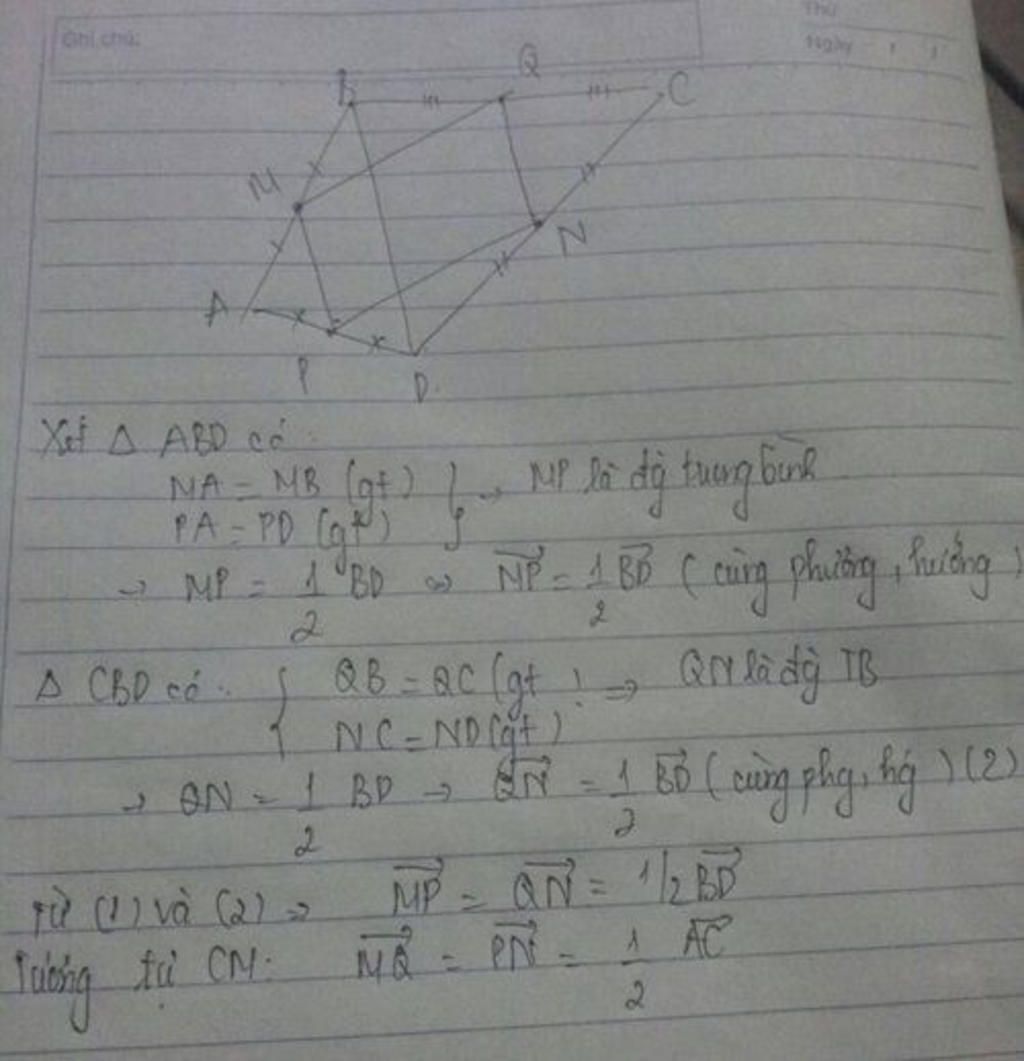 Ghi chú:
Thứ
Ngày
B Q C
M
N
A
P D
Xét Δ ABD có:
MA = MB (gt)
PA = PD (gt) } → MP là đg trung bình
→ MP = 1/2 BD ⇔ \overrightarrow{MP} = 1/2 \overrightarrow{BD} (cùng phương, hướng)
Δ CBD có: { QB = QC (gt) ⇒ QN là đg TB
NC = ND (gt)
→ QN = 1/2 BD → \overrightarrow{QN} = 1/2 \overrightarrow{BD} (cùng phg, hg) (2)
Từ (1) và (2) ⇒ \overrightarrow{MP} = \overrightarrow{QN} = 1/2 \overrightarrow{BD}
Tương tự CM: \overrightarrow{MQ} = \overrightarrow{PN} = 1/2 \overrightarrow{AC}